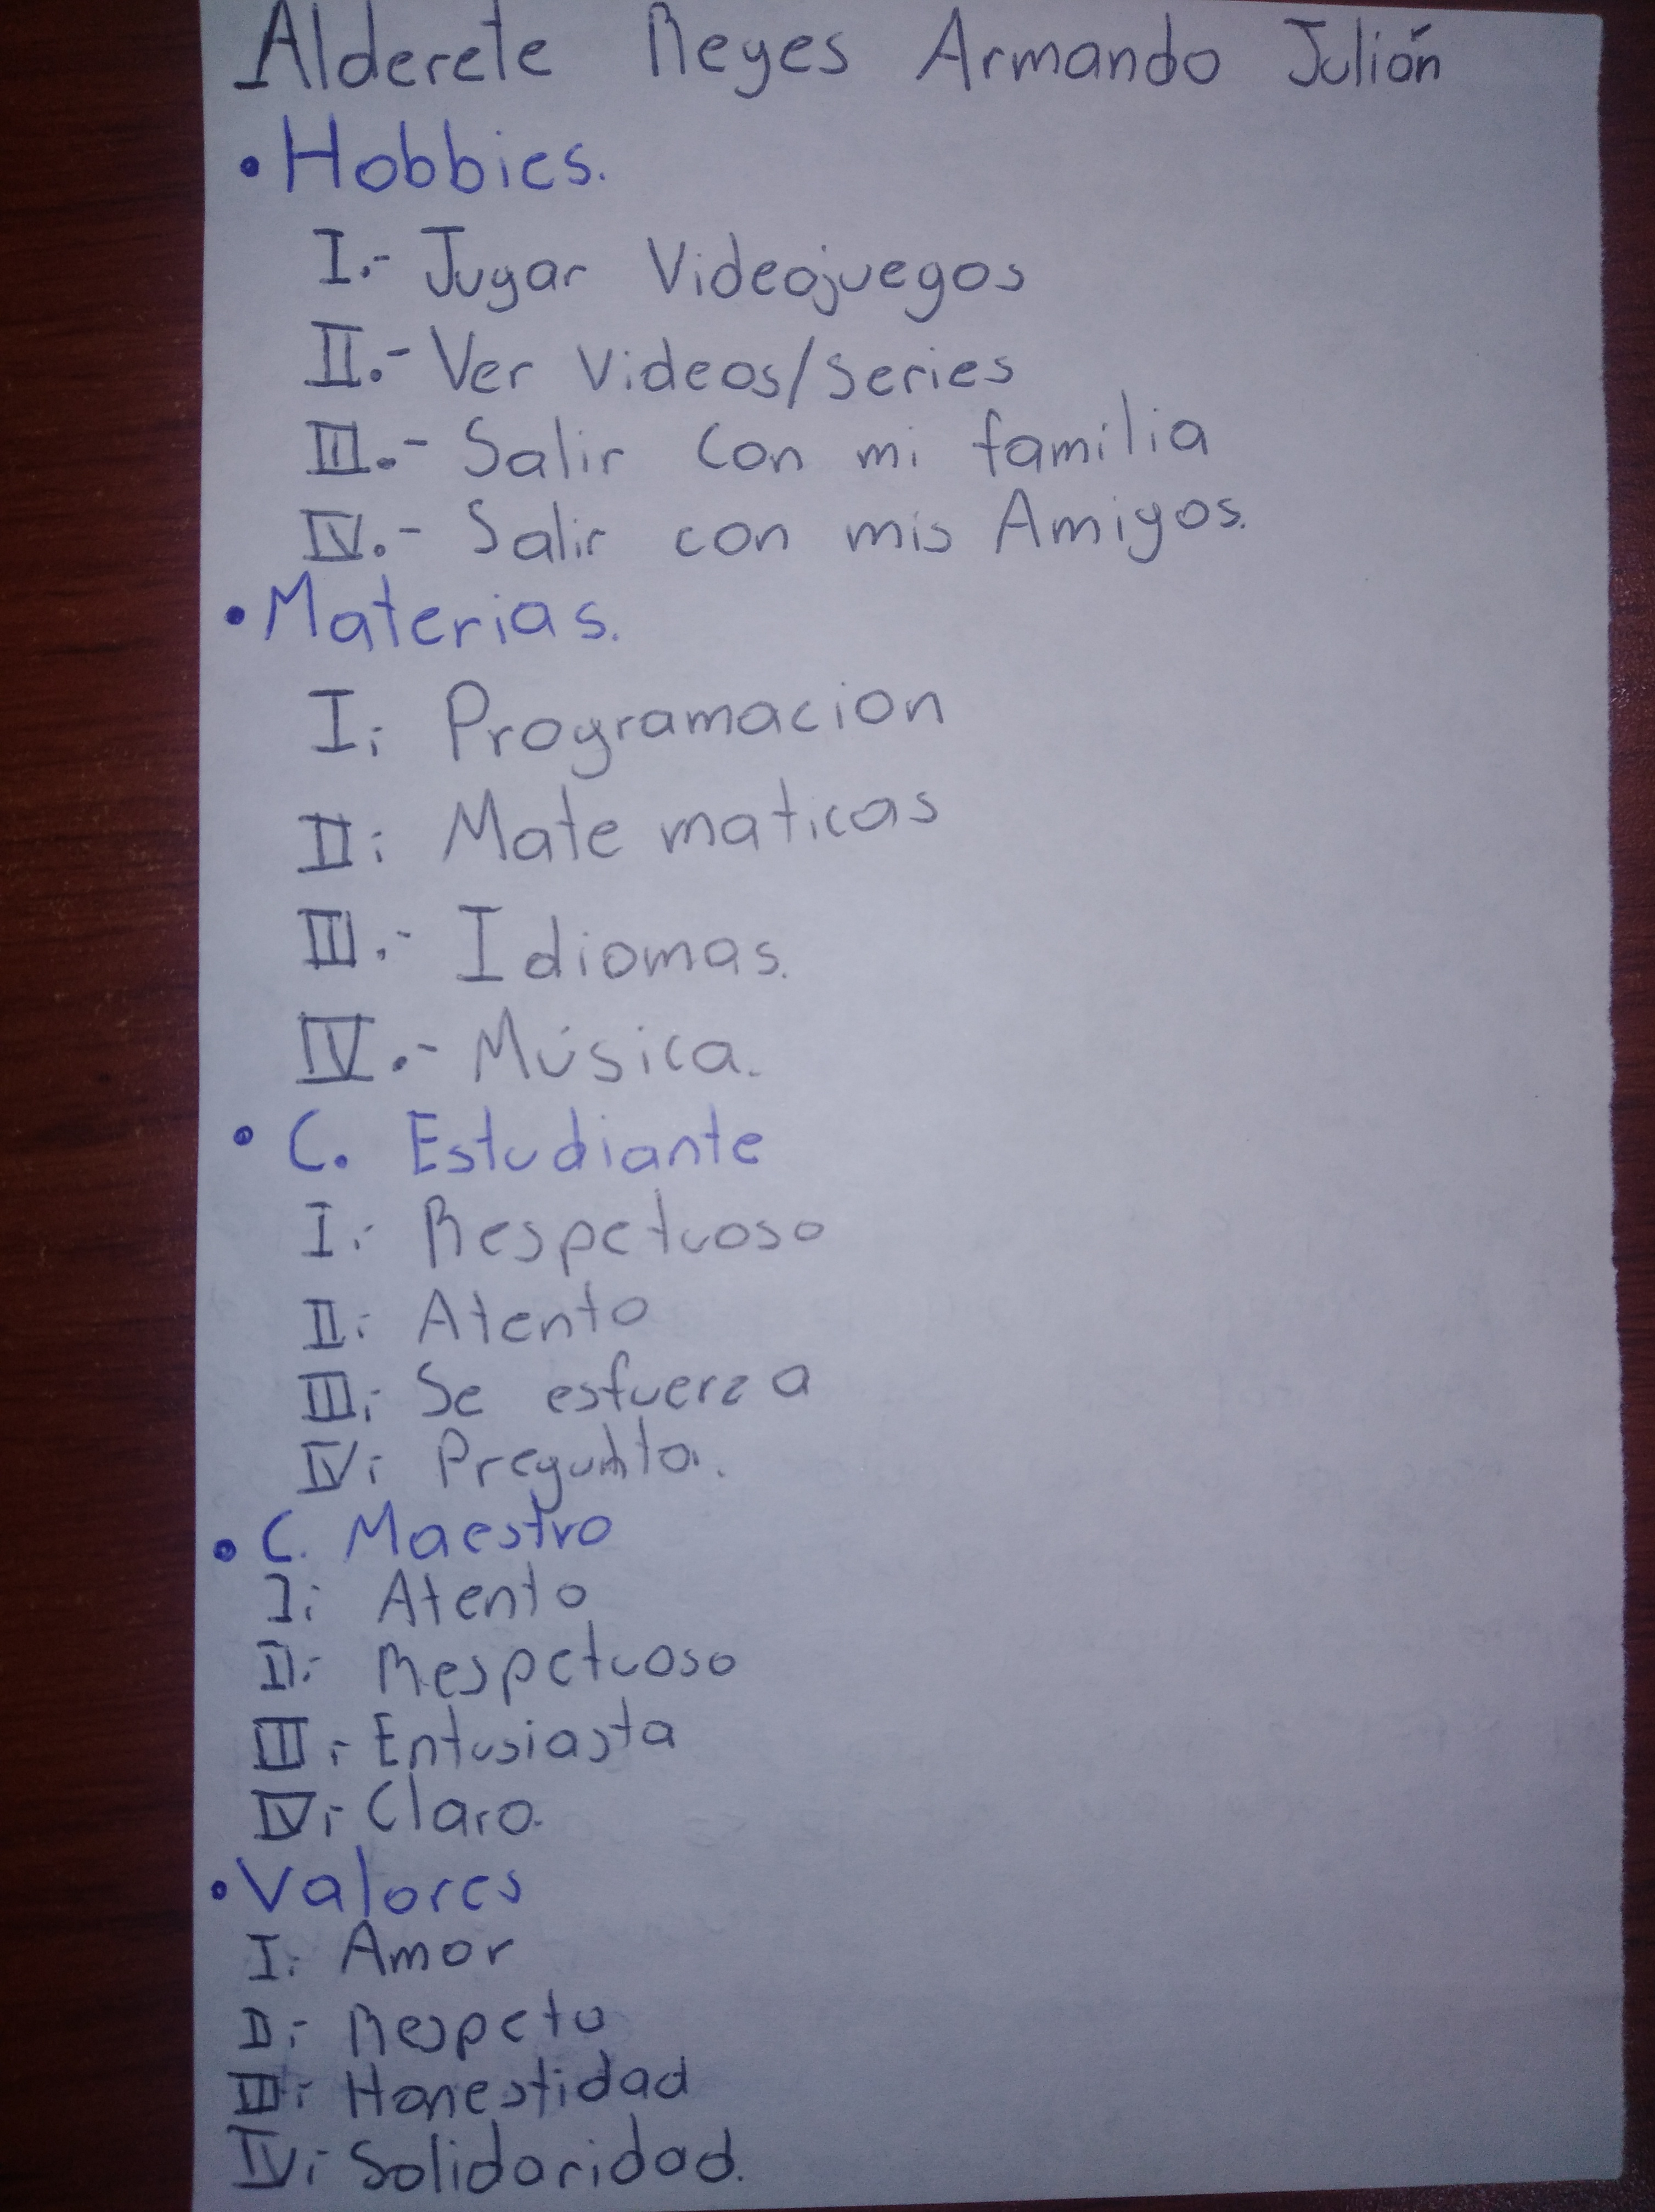 Alderete Reyes Armando Julián
• Hobbies.
I.- Jugar Videojuegos
II.- Ver Videos/Series
III.- Salir Con mi familia
IV.- Salir con mis Amigos.
• Materias.
I.- Programacion
II.- Matematicas
III.- Idiomas.
IV.- Música.
• C. Estudiante
I.- Respetuoso
II.- Atento
III.- Se esfuerza
IV.- Pregunta.
• C. Maestro
I.- Atento
II.- Respetuoso
III.- Entusiasta
IV.- Claro.
• Valores
I.- Amor
II.- Respeto
III.- Honestidad
IV.- Solidaridad.